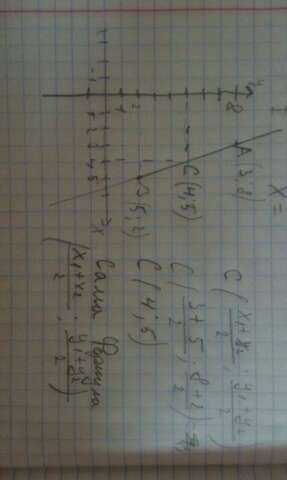 X =
y
8
A (3; 8)
C (4; 5)
(5; 2)
2
1
-1
1 2 3 4 5
x
C ( x₁ + x₂ / 2 ; y₁ + y₂ / 2 )
C ( 3 + 5 / 2 ; 8 + 2 / 2 )
C (4; 5)
Сама Формула
( x₁ + x₂ / 2 ; y₁ + y₂ / 2 )